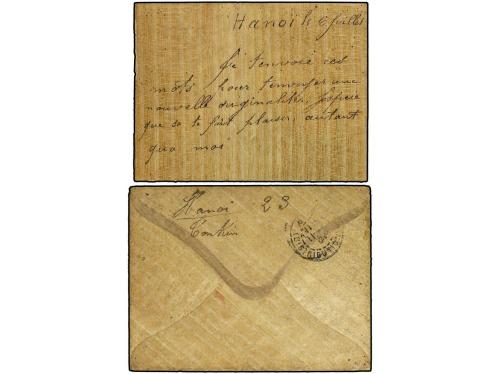 Hanoi le 6 Juillet
Je t'envoie ces
mots pour t'envoyer une
nouvelle originalité, j'espère
que sa te fera plaisir, autant
qua moi
Hanoi 23
Tonkin
DISTRIBUTION